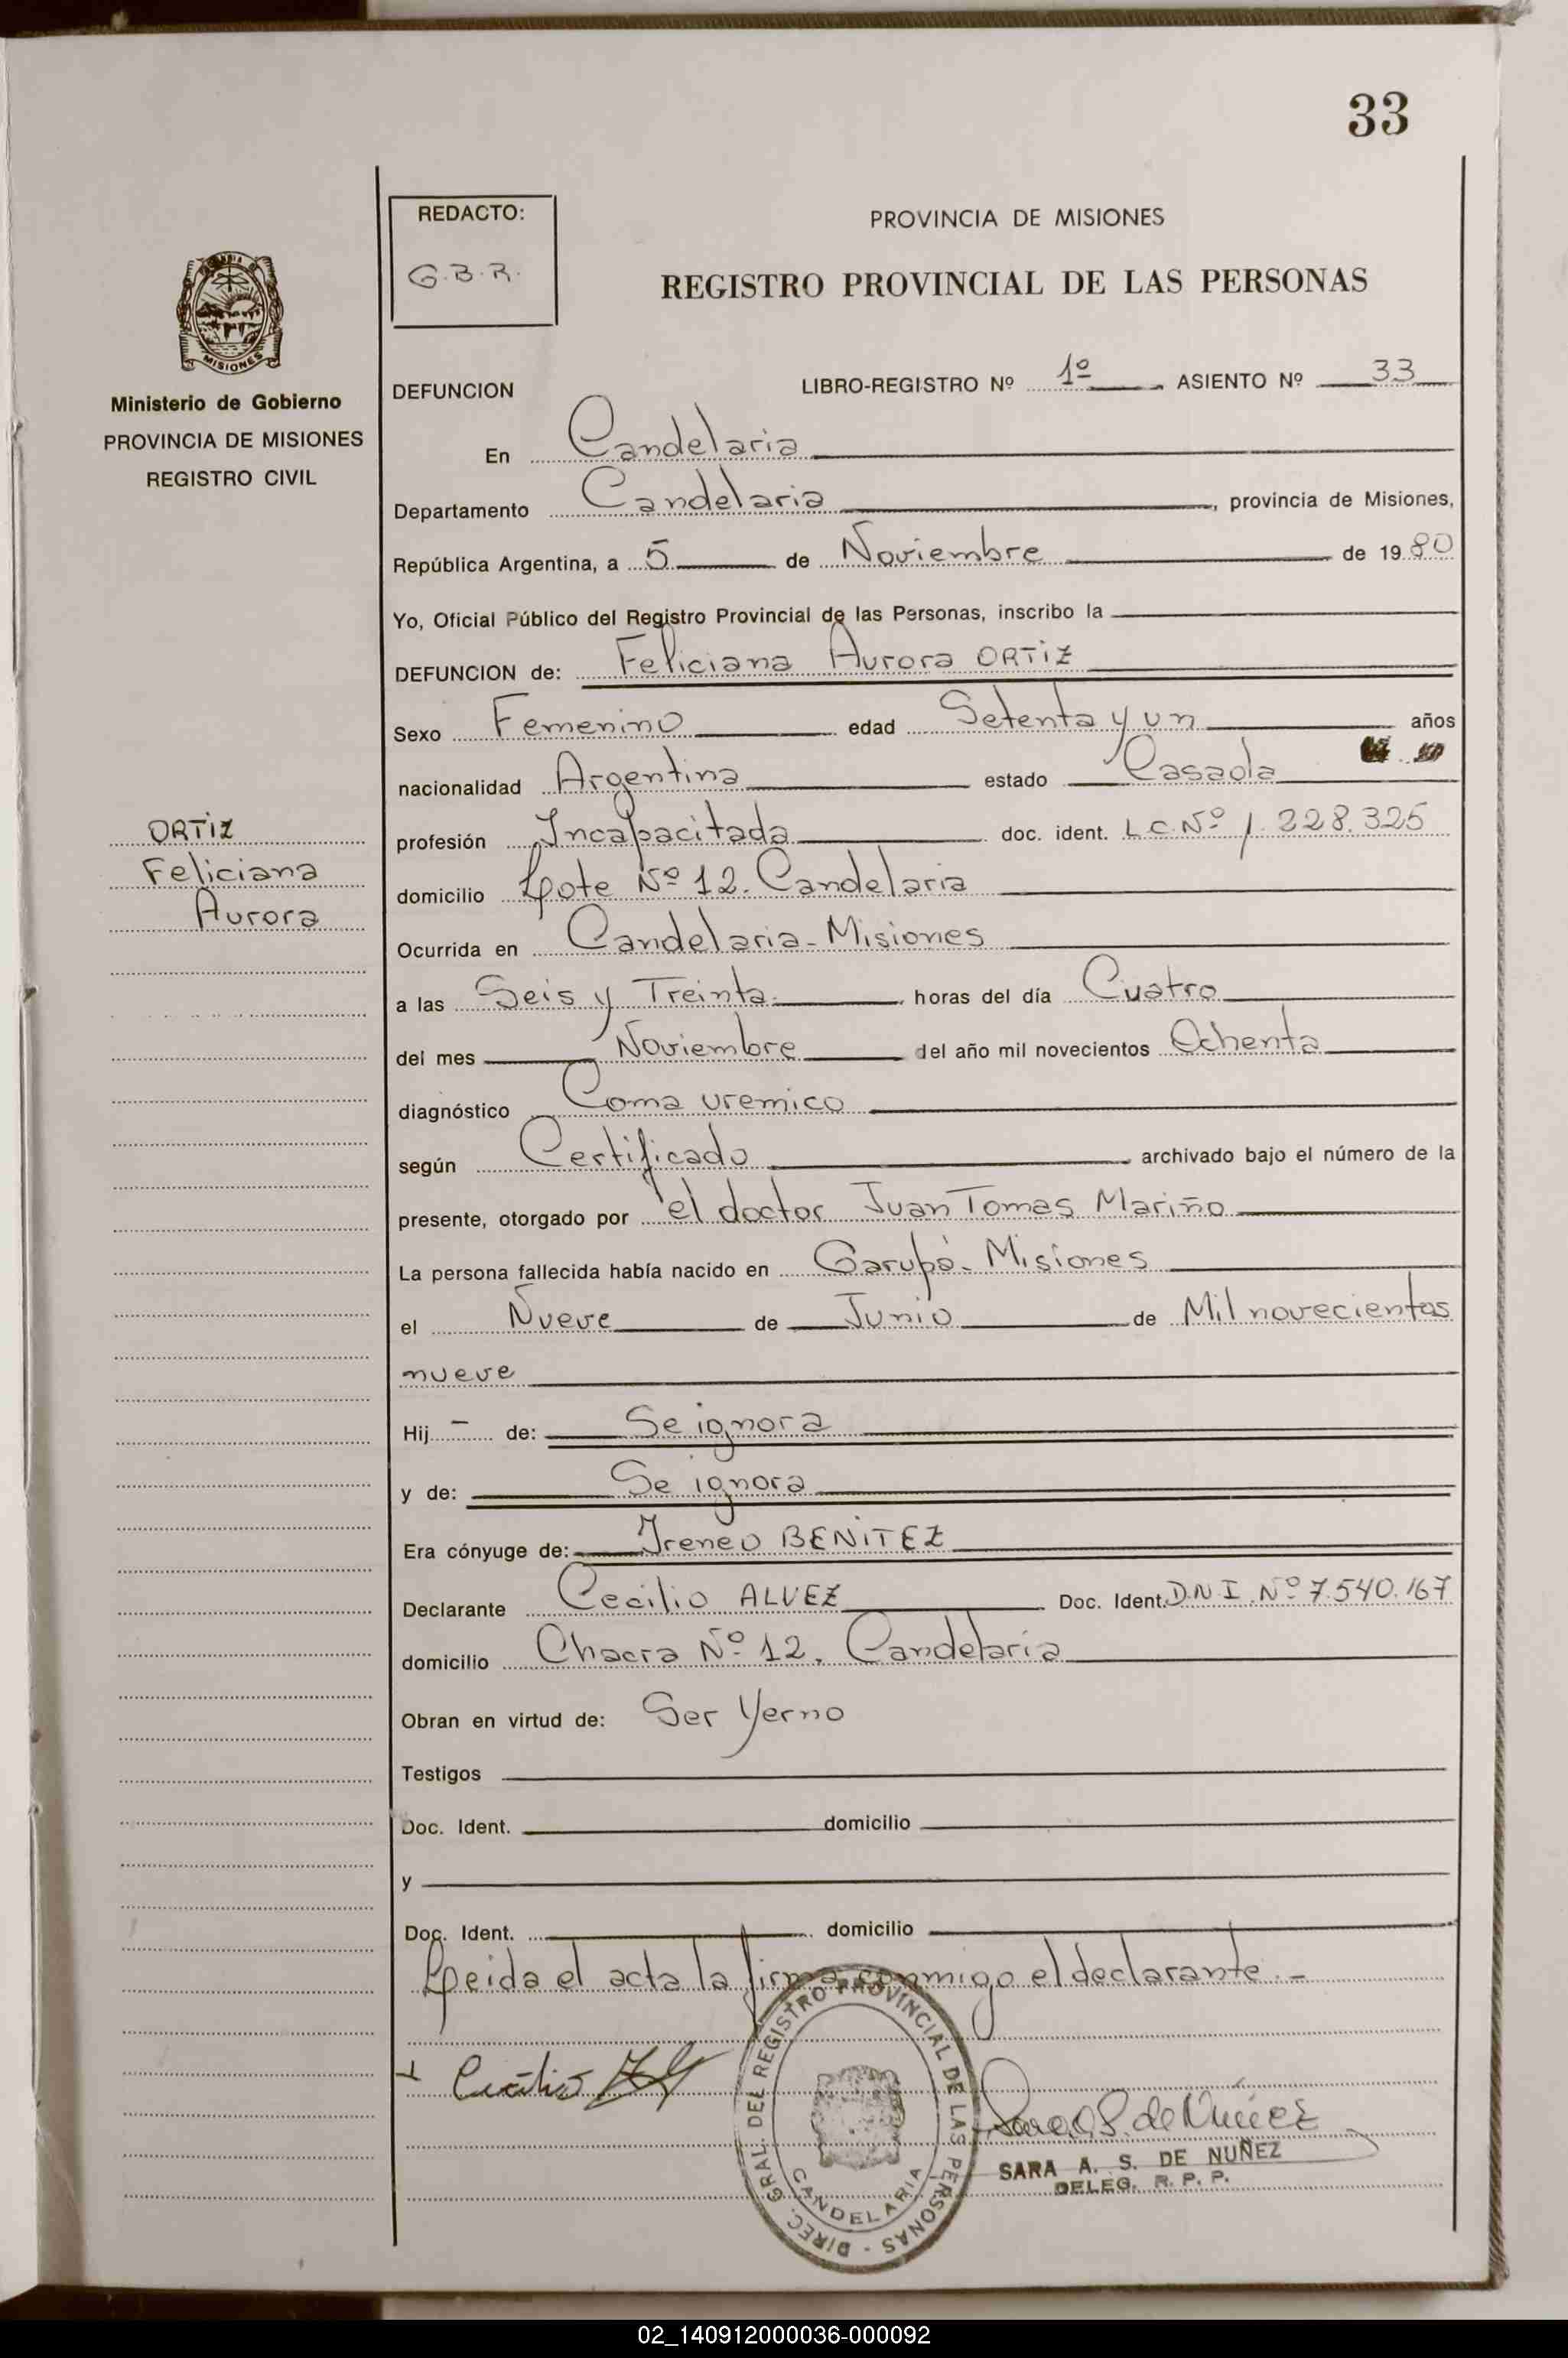 33
REDACTO:
G.B.R.
PROVINCIA DE MISIONES
REGISTRO PROVINCIAL DE LAS PERSONAS
MISIONES
Ministerio de Gobierno
PROVINCIA DE MISIONES
REGISTRO CIVIL
DEFUNCION LIBRO-REGISTRO Nº 1º ASIENTO Nº 33
En Candelaria
Departamento Candelaria, provincia de Misiones,
República Argentina, a 5 de Noviembre de 1980
Yo, Oficial Público del Registro Provincial de las Personas, inscribo la
DEFUNCION de: Feliciana Aurora ORTIZ
Sexo Femenino edad Setenta y un años
nacionalidad Argentina estado Casada
ORTIZ
Feliciana
Aurora
profesión Incapacitada doc. ident. L.C.Nº 1.228.325
domicilio Lote Nº 12. Candelaria
Ocurrida en Candelaria - Misiones
a las Seis y Treinta horas del día Cuatro
del mes Noviembre del año mil novecientos Ochenta
diagnóstico Coma uremico
según Certificado archivado bajo el número de la
presente, otorgado por el doctor Juan Tomas Mariño
La persona fallecida había nacido en Garupá - Misiones
el Nueve de Junio de Mil novecientos
nueve
Hij - de: Se ignora
y de: Se ignora
Era cónyuge de: Ireneo BENITEZ
Declarante Cecilio ALVEZ Doc. Ident. D.N.I. Nº 7.540.167
domicilio Chacra Nº 12. Candelaria
Obran en virtud de: Ser Yerno
Testigos
Doc. Ident. domicilio
y
Doc. Ident. domicilio
Leida el acta la firma conmigo el declarante. -
DIREC. GRAL. DEL REGISTRO PROVINCIAL DE LAS PERSONAS -
CANDELARIA
Cecilio
Sara A. S. de Nuñez
SARA A. S. DE NUÑEZ
DELEG. R. P. P.
02_140912000036-000092